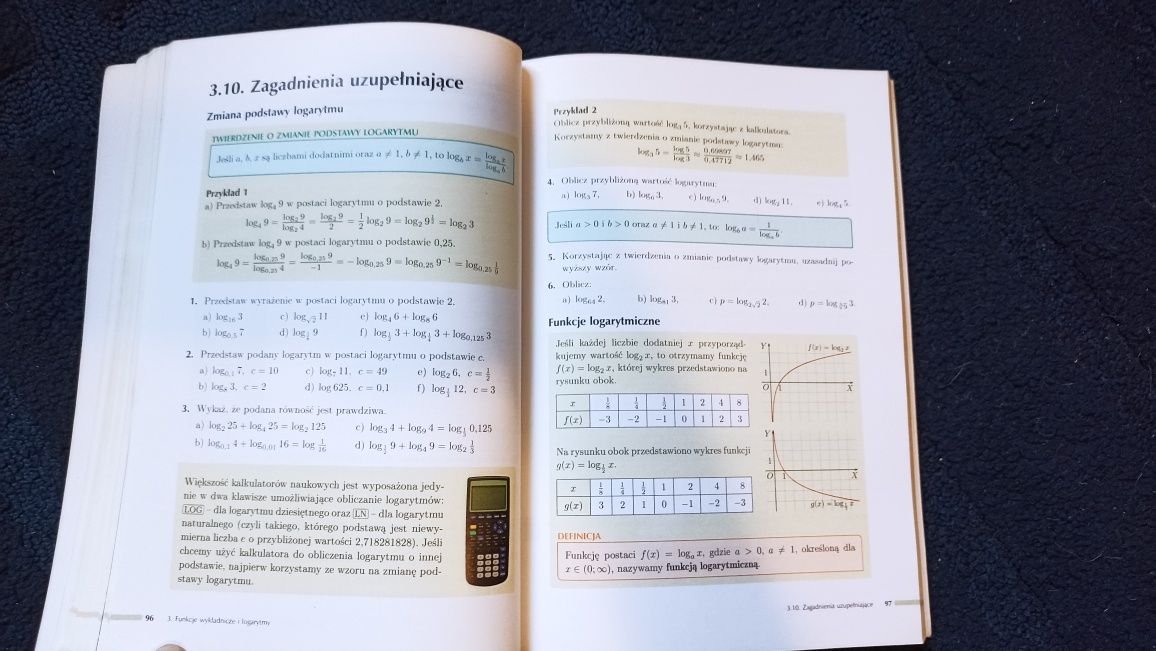 3.10. Zagadnienia uzupełniające
Zmiana podstawy logarytmu
TWIERDZENIE O ZMIANIE PODSTAWY LOGARYTMU
Jeśli a, b, x są liczbami dodatnimi oraz a ≠ 1, b ≠ 1, to log_b x = log_a x / log_a b
Przykład 1
a) Przedstaw log₄ 9 w postaci logarytmu o podstawie 2.
log₄ 9 = log₂ 9 / log₂ 4 = log₂ 9 / 2 = 1/2 log₂ 9 = log₂ 9^(1/2) = log₂ 3
b) Przedstaw log₄ 9 w postaci logarytmu o podstawie 0,25.
log₄ 9 = log_0,25 9 / log_0,25 4 = log_0,25 9 / −1 = −log_0,25 9 = log_0,25 9⁻¹ = log_0,25 1/9
1. Przedstaw wyrażenie w postaci logarytmu o podstawie 2.
a) log₁₆ 3 c) log_√2 11 e) log₄ 6 + log₈ 6
b) log_0,5 7 d) log_1/4 9 f) log_1/2 3 + log_1/4 3 + log_0,125 3
2. Przedstaw podany logarytm w postaci logarytmu o podstawie c.
a) log_0,1 7, c = 10 c) log₇ 11, c = 49 e) log₂ 6, c = 1/2
b) log₈ 3, c = 2 d) log 625, c = 0,1 f) log_1/3 12, c = 3
3. Wykaż, że podana równość jest prawdziwa.
a) log₂ 25 + log₄ 25 = log₂ 125 c) log₃ 4 + log₉ 4 = log_1/3 0,125
b) log_0,1 4 + log_0,01 16 = log 1/16 d) log_1/2 9 + log₄ 9 = log₂ 1/3
Większość kalkulatorów naukowych jest wyposażona jedy-
nie w dwa klawisze umożliwiające obliczanie logarytmów:
LOG – dla logarytmu dziesiętnego oraz LN – dla logarytmu
naturalnego (czyli takiego, którego podstawą jest niewy-
mierna liczba e o przybliżonej wartości 2,718281828). Jeśli
chcemy użyć kalkulatora do obliczenia logarytmu o innej
podstawie, najpierw korzystamy ze wzoru na zmianę pod-
stawy logarytmu.
96 3. Funkcje wykładnicze i logarytmy
Przykład 2
Oblicz przybliżoną wartość log₃ 5, korzystając z kalkulatora.
Korzystamy z twierdzenia o zmianie podstawy logarytmu:
log₃ 5 = log 5 / log 3 ≈ 0,69897 / 0,47712 ≈ 1,465
4. Oblicz przybliżoną wartość logarytmu:
a) log₃ 7, b) log₆ 3, c) log_0,5 9, d) log₂ 11, e) log₄ 5.
Jeśli a > 0 i b > 0 oraz a ≠ 1 i b ≠ 1, to: log_b a = 1 / log_a b.
5. Korzystając z twierdzenia o zmianie podstawy logarytmu, uzasadnij po-
wyższy wzór.
6. Oblicz:
a) log₆₄ 2, b) log₈₁ 3, c) p = log_2√2 2, d) p = log 3.
Funkcje logarytmiczne
Jeśli każdej liczbie dodatniej x przyporząd-
kujemy wartość log₂ x, to otrzymamy funkcję
f(x) = log₂ x, której wykres przedstawiono na
rysunku obok.
Y f(x) = log₂ x
1
O 1 X
x 1/8 1/4 1/2 1 2 4 8
f(x) −3 −2 −1 0 1 2 3
Na rysunku obok przedstawiono wykres funkcji
g(x) = log_1/2 x.
Y
1
O 1 X
g(x) = log_1/2 x
x 1/8 1/4 1/2 1 2 4 8
g(x) 3 2 1 0 −1 −2 −3
DEFINICJA
Funkcję postaci f(x) = log_a x, gdzie a > 0, a ≠ 1, określoną dla
x ∈ (0; ∞), nazywamy funkcją logarytmiczną.
3.10. Zagadnienia uzupełniające 97